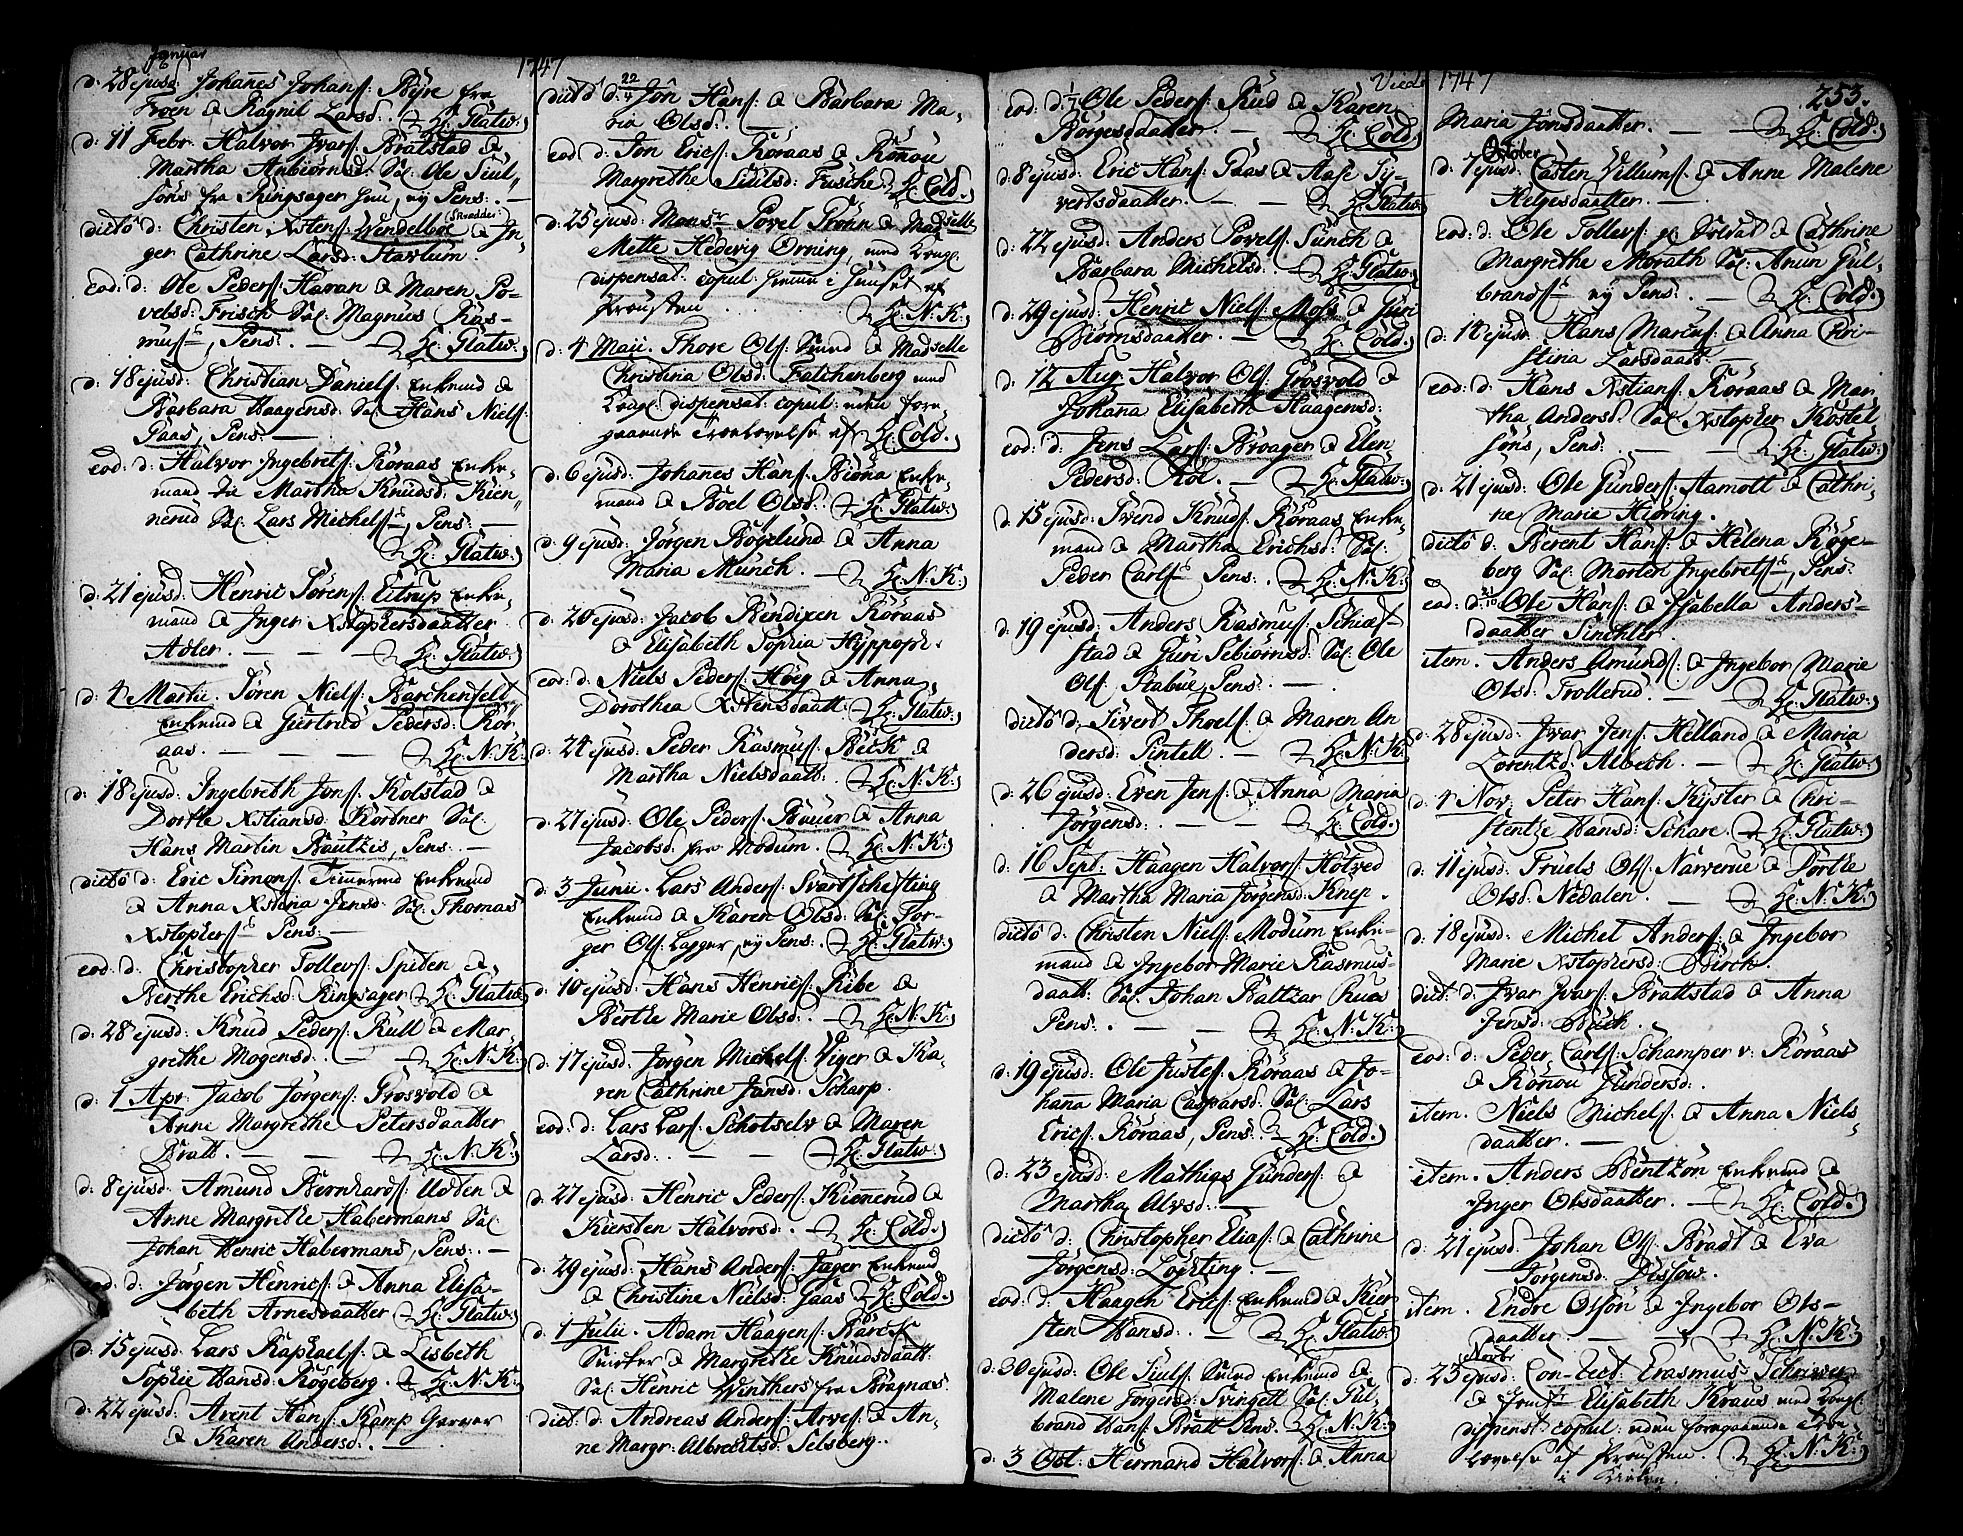 Januar
1747
d: 28 ejusd: Johanes Johans: Byre fra
Froen & Ragnil Larsd: Hr: Glatw:
d: 11 Febr. Halvor Jvars: Bratstad &
Martha Anbiørnsd: Sal: Ole Siul-
søns fra Ringsager, ny Pens: —
dicto d: Christen Xstens: Wendelboe (Skrædder) & In-
ger Cathrine Larsd: Stavlum.
eod: d: Ole Peders: Havan & Maren Po-
velsd: Frisch Sal: Magnus Ras-
mus:, Pens: — Hr: Glatw:
d: 18 ejusd: Christian Daniels: Enkmd &
Barbara Haagensd: Sal: Hans Niels:
Gaas, Pens: —
eod: d: Halvor Ingebrets: Koraas Enke-
mand til Martha Knudsd: Kien-
nerud Sal: Lars Michels:, Pens: —
Hr: Glatw:
d: 21 ejusd: Henric Sørens: Eitrup Enke-
mand & Inger Xstophersdaatter
Adler. — Hr: Glatw:
d: 4 Martii. Søren Niels: Barchenfelt
Enkmd & Giertrud Pedersd: Kor-
aas. — Hr: N: K:
d: 18 ejusd: Ingebreth Jons: Kolstad &
Dorthe Xstiansd: Körbner Sal:
Hans Martin Bautzis, Pens: —
dicto d: Eric Simons: Enkmd
& Anna Xstina Jensd: Sal: Thomas
Xstophers: Pens: —
eod: d: Christopher Tollevs: Spiten &
Berthe Erichsd: Ringsager Hr: Glatw:
d: 28 ejusd: Knud Peders: Rull & Mar-
grethe Mogensd: — Hr: N: K:
d: 1 Apr: Jacob Jørgens: Grosvold &
Anne Margrethe Petersdaatter
Bratt. — Hr: N: K:
d: 8 ejusd: Amund Bernhards: Uden &
Anne Margrethe Habermans Sal:
Johan Henric Habermans, Pens: —
eod: d: Jørgen Henrics: & Anna Elisa-
beth Arnesdaatter Hr: Glatw:
d: 15 ejusd: Lars Raphaels: & Lisbeth
Sophie Hansd: Røgeberg. Hr: N: K:
d: 22 ejusd: Arent Hans: Kamp Garver
& Karen Andersd: —
dicto d: 22/4 Jon Hans: & Barbara Ma-
ria Olsd: —
eod d: Jon Erics: Koraas & Rønnou
Margrethe Siulsd: Fusche Hr: Cold:
d: 25 ejusd: Monsr Povel Tronn & Madselle
Mette Hedevig Orning, med Kongl:
dispensat: copul: hiemme i Huuset af
Prousten. Hr: N: K:
d: 4 Maii: Thore Ols: Smed & Madselle
Christina Olsd: Falchenberg med
Kongl: dispensat: copul: uden fore-
gaaende Trolovelse af Hr: Cold:
d: 6 ejusd: Johanes Hans: Enke-
mand & Boel Olsd: Hr: Glatw:
d: 9 ejusd: Jørgen Bøgelund & Anna
Maria Münch. — Hr: N: K:
d: 20 ejusd: Jacob Bendixen Koraas
& Elisabeth Sophia Hyppoph:
eod: d: Niels Peders: Høeg & Anna
Dorothea Xstensdaatt: Hr: Glatw:
d: 24 ejusd: Peder Rasmus: Beck &
Martha Nielsdaatt: Hr: N: K:
d: 27 ejusd: Ole Peders: Bauer & Anna
Jacobsd: fra Modum. Hr: N: K:
d: 3 Junii. Lars Anders: Svartschefting
Enkmd & Karen Olsd: Sal: Tor-
ger Ols: Lagger, ny Pens: Hr: Glatw:
d: 10 ejusd: Hans Henrics: Ribe &
Berthe Marie Olsd: — Hr: N: K:
d: 17 ejusd: Jørgen Michels: Viger & Ka-
ren Cathrine Jonsd: Scharp.
eod: d: Lars Lars: Schotselv & Maren
Larsd: — Hr: Glatw:
d: 27 ejusd: Henric Peders: Kiønnerud &
Kiersten Halvorsd: Hr: Cold:
d: 29 ejusd: Hans Anders: Jæger Enkmd
& Christine Nielsd: Gaas Hr: Cold:
d: 1 Julii. Adam Haagens: Barck
& Margrethe Knudsdaatt:
Sal: Henric Winthers fra Bragnæs
dict: d: Andreas Anders: Arves: & An-
ne Margr: Albrechtsd: Selsberg.
Viede 1747
253.
eod: d: 1/7 Ole Peders: Rud & Karen
Børgesdaatter. — Hr: Cold:
d: 8 ejusd: Eric Hans: Gaas & Aase Sy-
vertsdaatter. — Hr: Glatw:
d: 22 ejusd: Anders Povels: Sünch &
Barbara Michelsd: Hr: Glatw:
d: 29 ejusd: Henric Niels: Moss & Guri
Biørnsdaatter. — Hr: Cold:
d: 12 Aug: Halvor Ols: Grosvold &
Johanna Elisabeth Haagensd:
eod: d: Jens Lars: Broager & Elen
Pedersd: Kol. — Hr: Glatw:
d: 15 ejusd: Svend Knuds: Koraas Enke-
mand & Martha Erichsd: Sal:
Peder Carls: Pens: Hr: N: K:
d: 19 ejusd: Anders Rasmus: Schias-
stad & Guri Sebiørnsd: Sal: Ole
Ols: Stabue, Pens: —
dicto d: Sivert Thoels: & Maren An-
dersd: Pintell. — Hr: N: K:
d: 26 ejusd: Even Jens: & Anna Maria
Jørgensd: — Hr: Cold:
d: 16 Sept: Haagen Halvors: Holved
& Martha Maria Jørgensd: Knep.
dicto d: Christen Niels: Modum Enke-
mand & Ingebor Marie Rasmus-
daatt: Sal: Johan Baltzar Ruus
Pens: — Hr: N: K:
d: 19 ejusd: Ole Justes: Koraas & Jo-
hanna Maria Caspersd: Sal: Lars
Erics: Koraas, Pens: Hr: Cold:
d: 23 ejusd: Mathias Gunders: &
Martha Alvsd: —
dicto d: Christopher Elias: & Cathrine
Jørgensd: Løchting. —
eod: d: Haagen Erics: Enkmd & Kier-
sten Hansd: — Hr: Glatw:
d: 30 ejusd: Ole Siuls: Enkmd &
Malene Jørgensd: Svingett Sal: Gul-
brand Hans: Bratt Pens: Hr: N: K:
d: 3 Oct: Hermand Halvors: & Anna
Maria Jonsdaatter. — Hr: Cold:
October
d: 7 ejusd: Casten Villums: & Anne Malene
Helgesdaatter. —
eod: d: Ole Tollevs: & Cathrine
Margrethe Morath Sal: Anun Gul-
brands: ny Pens: — Hr: Cold:
d: 14 ejusd: Hans Marcus: & Anna Chri-
stina Larsdaatt: —
eod: d: Hans Xstians: Koraas & Mar-
tha Andersd: Sal: Xstopher Kostel-
søns, Pens: — Hr: Glatw:
d: 21 ejusd: Ole Gunders: Aamott & Cathri-
ne Maria Hiøring.
dicto d: Berent Hans: & Helena Røge-
berg Sal: Morten Ingebrets:, Pens:
eod: d: 21/10 Ole Hans: & Isabella Anders-
daatter Sinchler.
item. Anders Amunds: & Ingebor Marie
Olsd: Trollerud. — Hr: Glatw:
d: 28 ejusd: Jvar Jens: Helland & Maria
Lorentzd: Albeth. — Hr: Glatw:
d: 4 Nov: Peter Hans: Kyster & Chri-
stentze Hansd: Schare. Hr: Glatw:
d: 11 ejusd: Truels Ols: Narverue & Dorthe
Olsd: Nedalen. — Hr: N: K:
d: 18 ejusd: Michel Anders: & Ingebor
Marie Xstophersd: Birch.
dict: d: Jvar Jvars: Brattstad & Anna
Jensd: Buch.
eod: d: Peder Carls: Schamper v: Koraas
& Rønnou Gundersd:
item. Niels Michels: & Anna Niels-
daatter. —
item. Anders Bentzon Enkmd &
Inger Olsdaatter. — Hr: Cold:
d: 21 ejusd: Johan Ols: Bradt & Eva
Jørgensd: Dessow.
item. Endre Olson & Ingebor Ols-
daatter. — Hr: N: K:
Novbr
d: 23 ejusd: Con-Rect: Erasmus Schriwer
& Jomfr Elisabeth Kraus med Kongl:
dispenst: copul: uden foregaaende Troe-
lovelse af Prousten. Hr: N: K:
i Kirken.